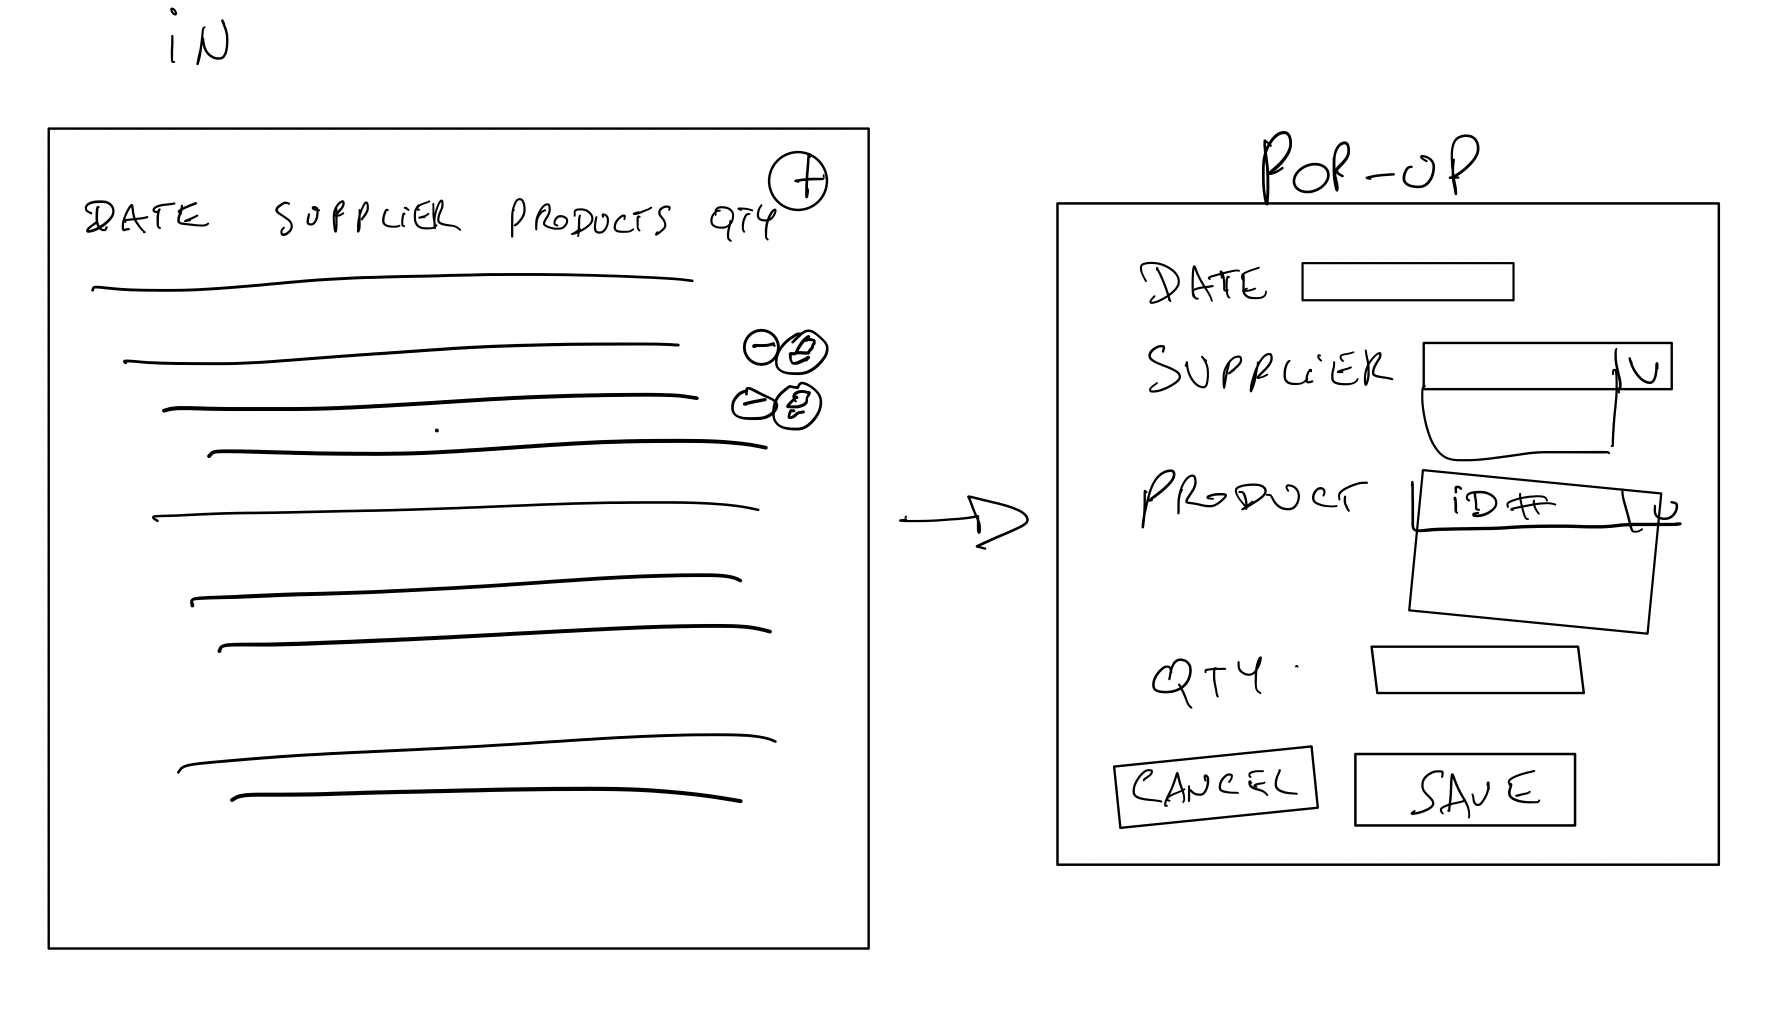 iN
POP-UP
DATE SUPPLiER PRODUCTS QTY
DATE
SUPPLiER
PRODUCT iD#
QTY
CANCEL SAVE